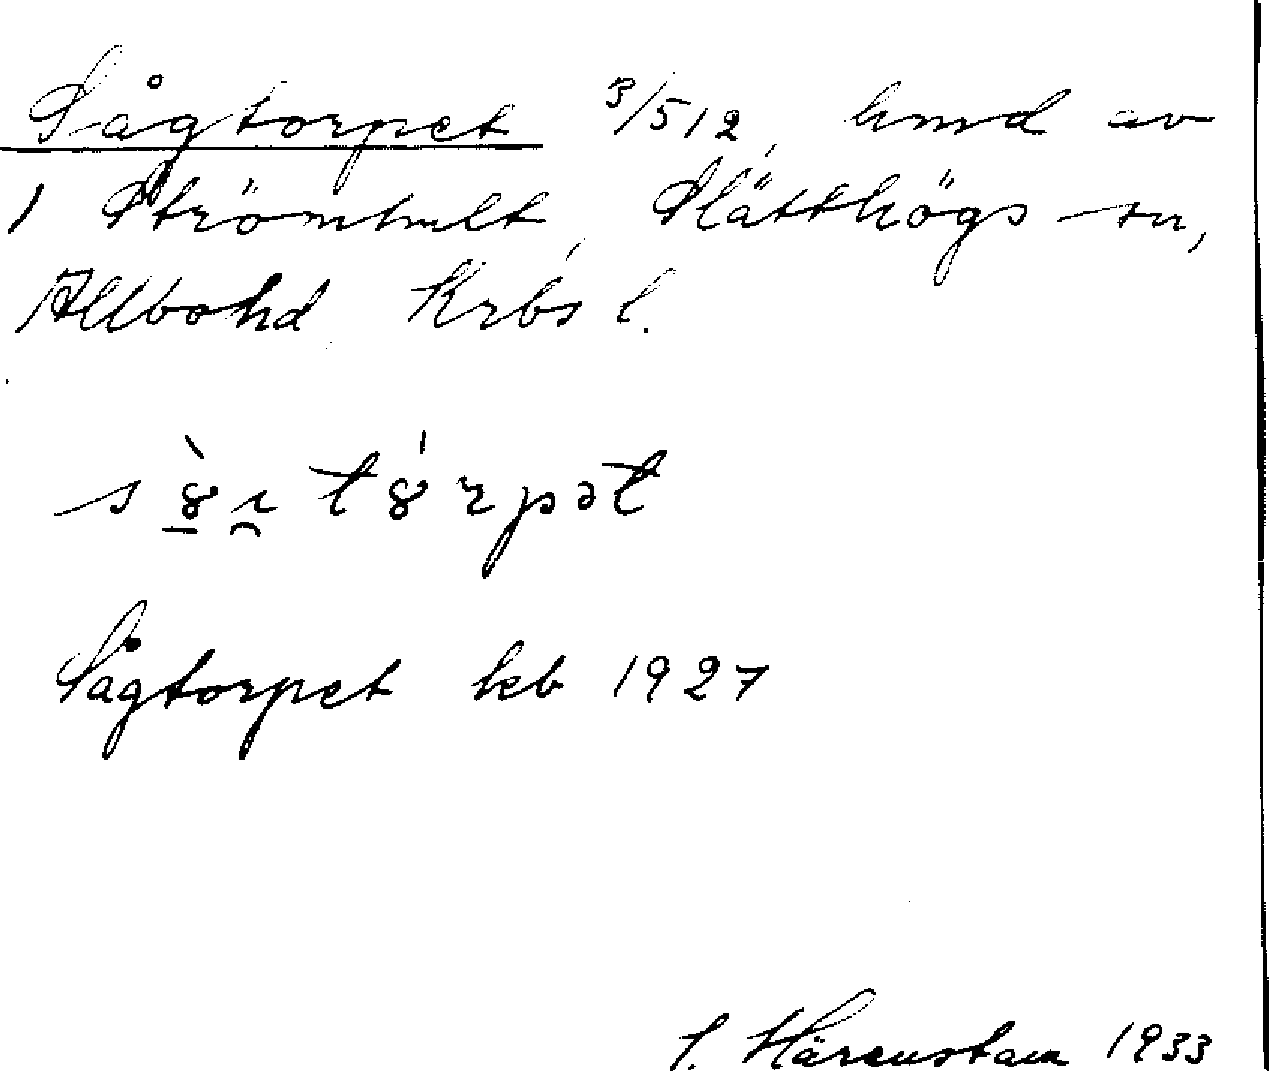 Sågtorpet 3/512, hmd av
1 Strömhult, Slätthögs sn,
Allbohd Krbs l.
Sågtorpet kb 1927
S. Härenstam 1933